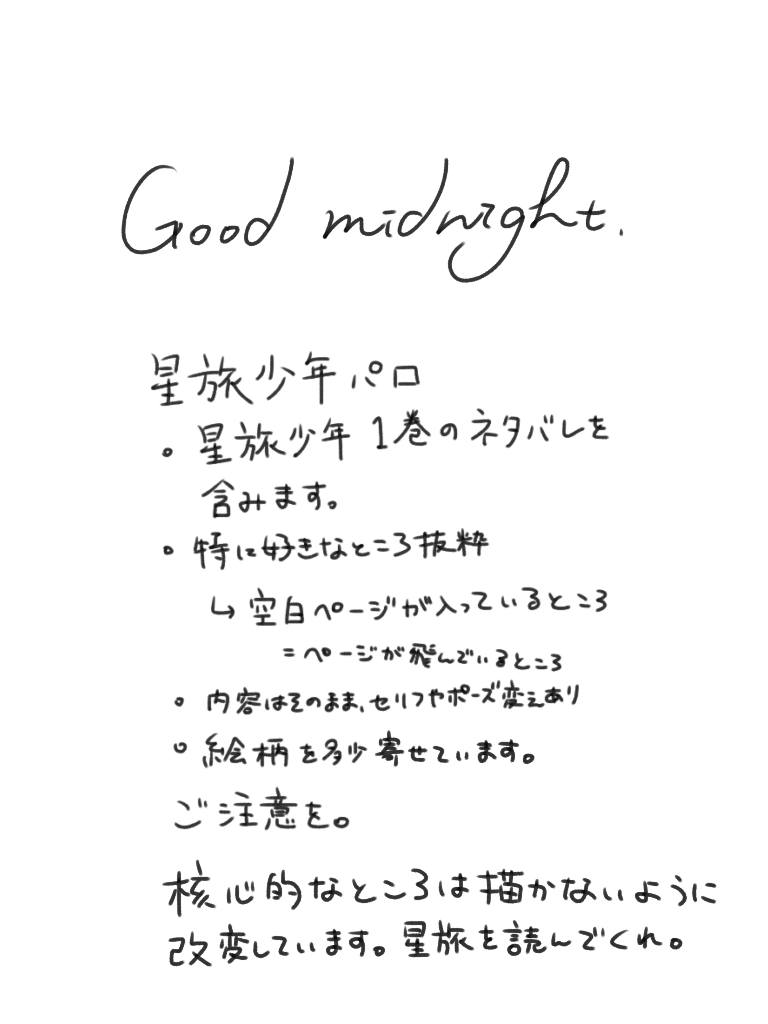 Good midnight.
星旅少年パロ
。星旅少年 1巻のネタバレを
含みます。
。特に好きなところ抜粋
↳ 空白ページが入っているところ
=ページが飛んでいるところ
。内容はそのまま、セリフやポーズ変えあり
。絵柄を多少寄せています。
ご注意を。
核心的なところは描かないように
改変しています。星旅を読んでくれ。